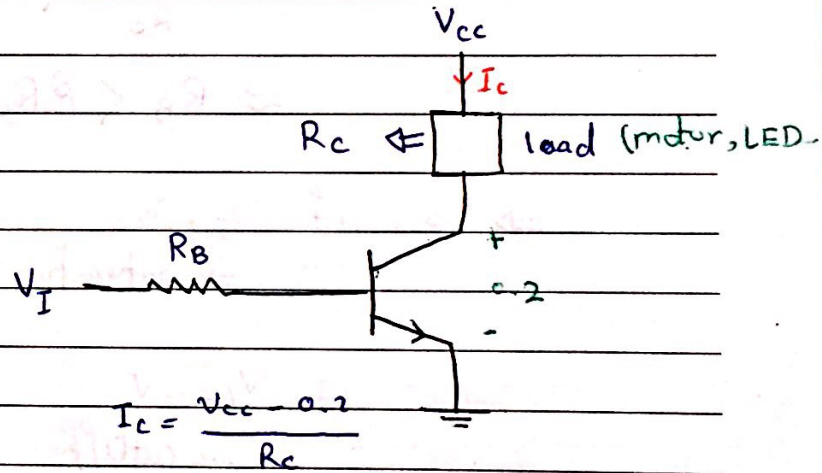 Vcc
Ic
Rc ⇐ load (motor, LED
RB
VI
+
0.2
-
Ic = Vcc - 0.2 / Rc